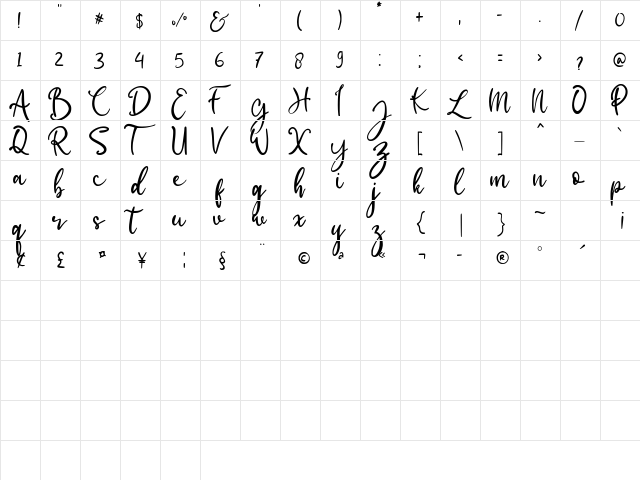 ! " # $ % & ' ( ) * + , - . / 0
1 2 3 4 5 6 7 8 9 : ; < = > ? @
A B C D E F G H I J K L M N O P
Q R S T U V W X Y Z [ \ ] ^ _ `
a b c d e f g h i j k l m n o p
q r s t u v w x y z { | } ~ ¡
¢ £ ¤ ¥ ¦ § ¨ © ª « ¬ - ® ° ´